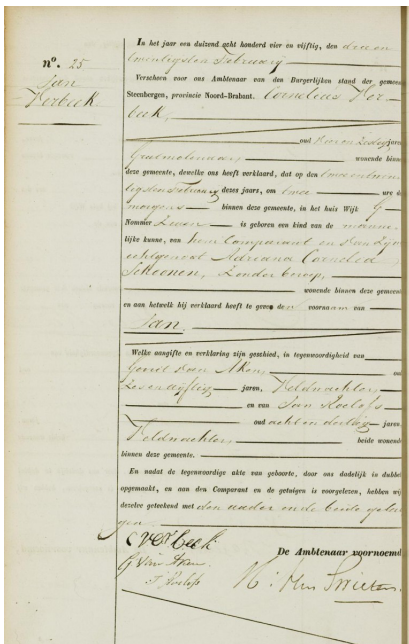 n°. 25
Jan
Verbeek
In het jaar een duizend acht honderd vier en vijftig, den drie en
twintigsten February
Verscheen voor ons Ambtenaar van den Burgerlijken stand der gemeen
Steenbergen, provincie Noord-Brabant. Cornelius Ver
beek,
oud jaren
wonende binne
deze gemeente, dewelke ons heeft verklaard, dat op den twee en twin
tigsten February dezes jaars, om twee ure d
morgens binnen deze gemeente, in het huis Wijk G
Nommer is geboren een kind van de manne
lijke kunne, van hem Comparant en van zyne
echtgenoot Adriana Cornelia
Schoonen, Zonder beroep,
wonende binnen deze gemeent
en aan hetwelk hij verklaard heeft te geven den voornaam van
Jan.
Welke aangifte en verklaring zijn geschied, in tegenwoordigheid van
Gerrit van Aken, ou
Zes en vijftig jaren, Veldwachter
en van Jan Roelofs
oud acht en dertig jaren,
Veldwachter beide wonend
binnen deze gemeente.
En nadat de tegenwoordige akte van geboorte, door ons dadelijk in dubbel
opgemaakt, en aan den Comparant en de getuigen is voorgelezen, hebben wij
dezelve geteekend met den vader en de beide getui
gen
C Verbeek
G van Aken
J Roelofs
De Ambtenaar voornoemd